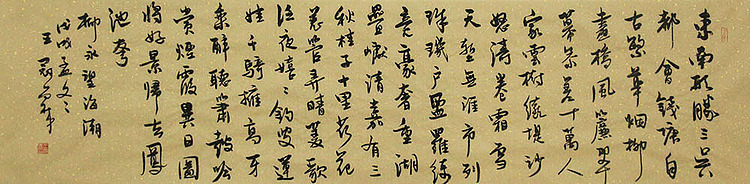 東南形勝三吴
都會錢塘自
古繁華烟柳
畫橋風簾翠
幕參差十萬人
家雲樹繞堤沙
怒濤卷霜雪
天塹無涯市列
珠璣户盈羅綺
竞豪奢重湖
疊巘清嘉有三
秋桂子十里荷花
羌管弄晴菱歌
泛夜嬉嬉釣叟蓮
娃千騎擁高牙
乘醉聽簫鼓吟
賞煙霞異日圖
將好景歸去鳳
池夸
柳永望海潮
戊戌孟冬
王